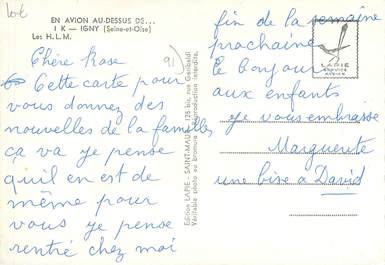 lot
EN AVION AU-DESSUS DE...
1 K — IGNY (Seine-et-Oise)
Les H.L.M.
91)
Chère Rose
Cette carte pour
vous donnez des
nouvelles de la famille,
ça va je pense
qu'il en est de
même pour
vous je pense
rentré chez moi
Edition LAPIE - SAINT-MAUR - 125 bis, rue Garibaldi
Véritable photo au bromure - Reproduction interdite.
fin de la semaine
prochaine
le bonjour
aux enfants
je vous embrasse
Marguerite
une bise à David
LAPIE
SERVICE
AERIEN